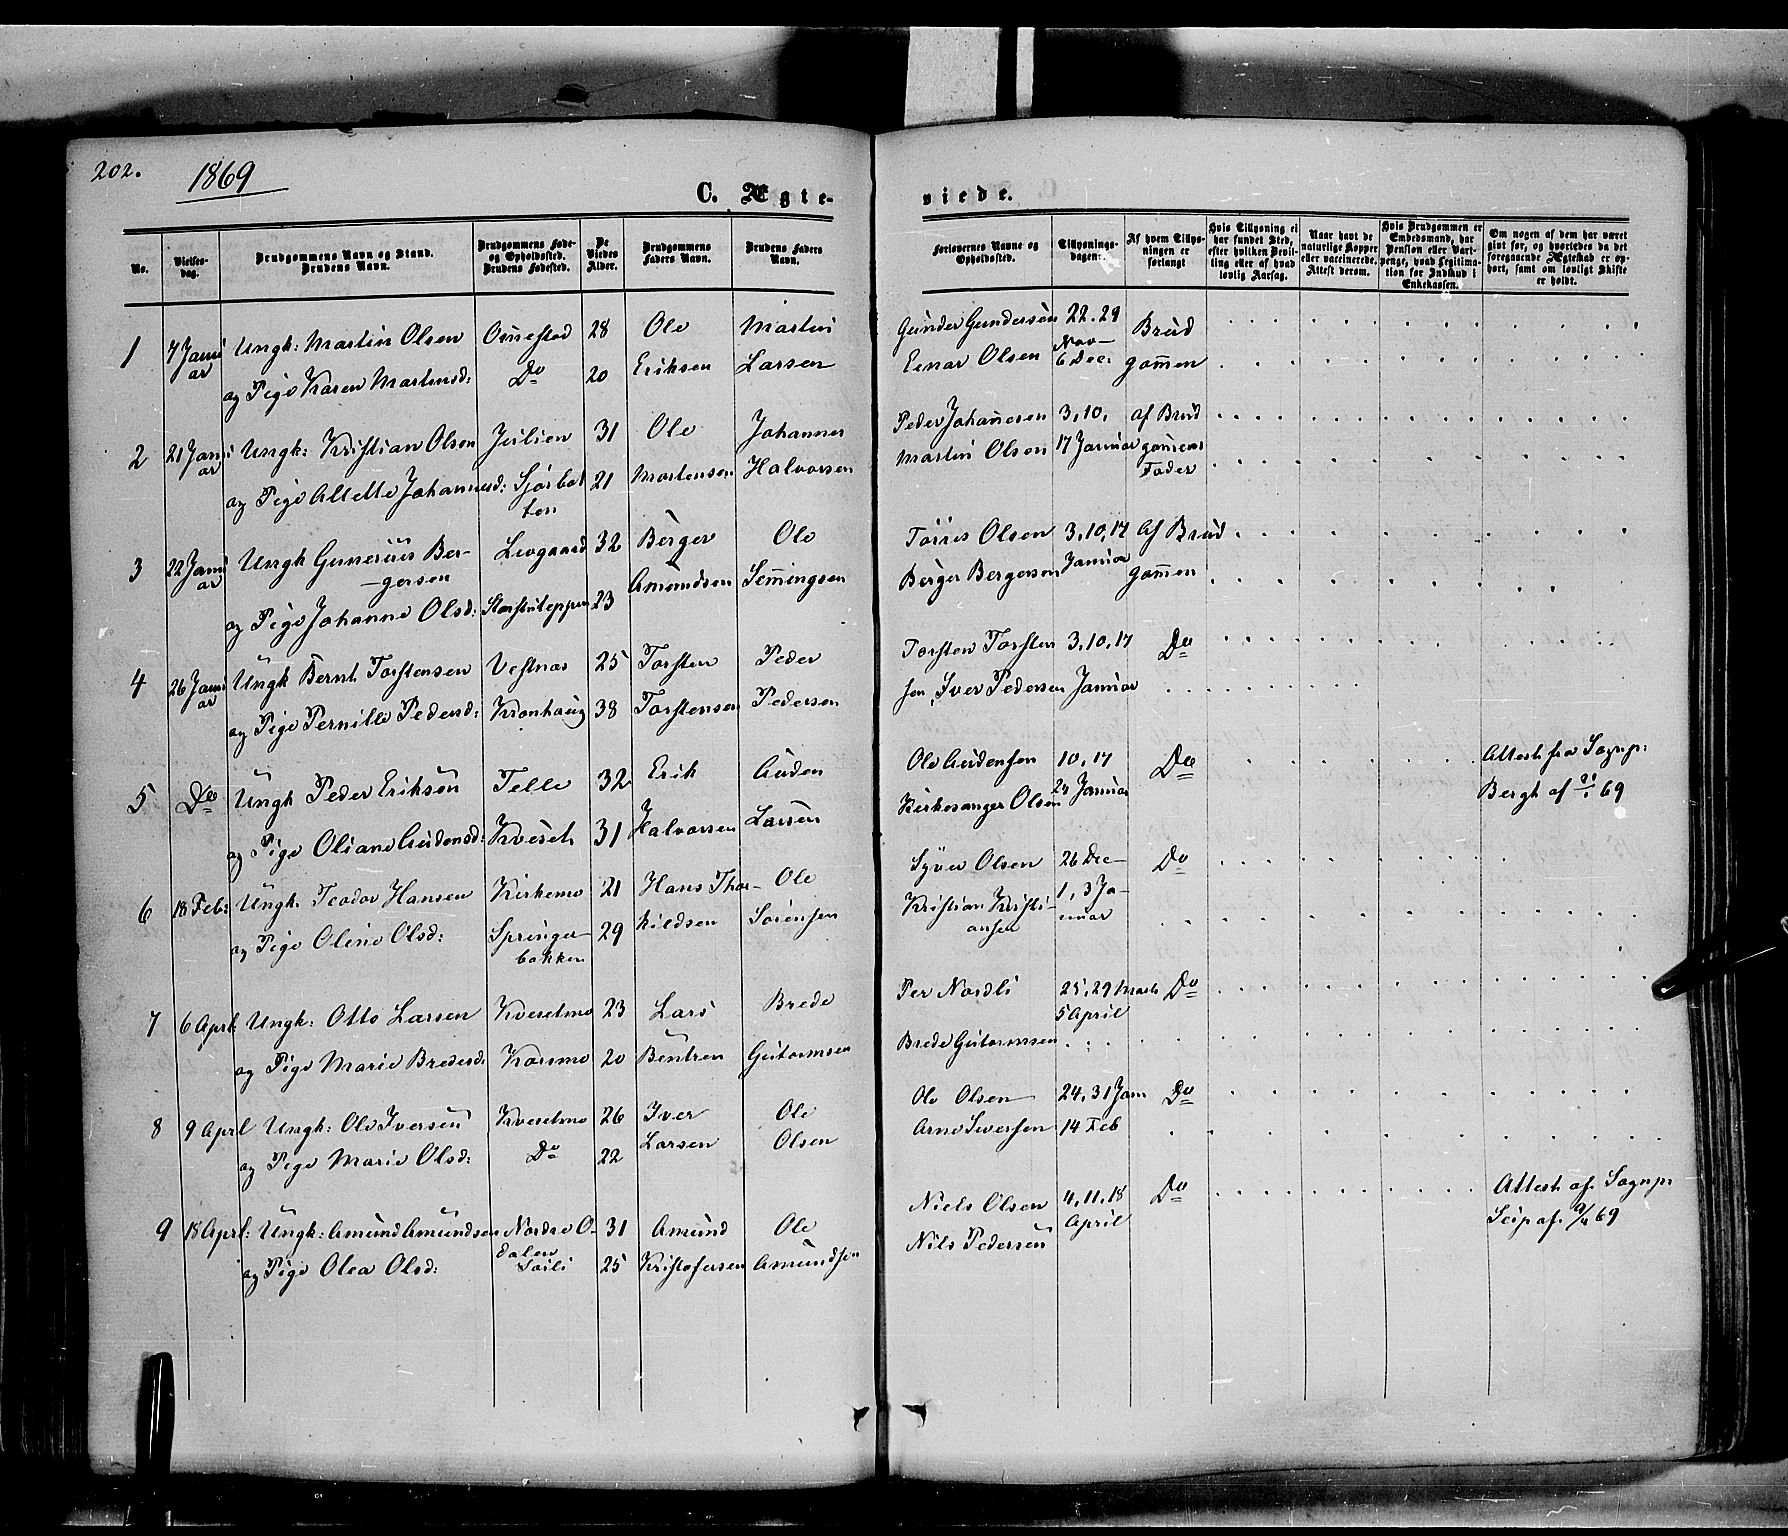 202.
1869
C. Ægteviede.
No.
Vielsesdag.
Brudgommens Navn og Stand. Brudens Navn.
Brudgommens Føde- og Opholdssted. Brudens Fødested.
De Viedes Alder.
Brudgommens Faders Navn.
Brudens Faders Navn.
Forlovernes Navne og Opholdssted.
Tillysningsdagen.
Af hvem Tillysningen er forlangt
Hvis Tillysning ei har fundet Sted, efter hvilken Bevilling eller af hvad lovlig Aarsag.
Naar havt de naturlige Kopper eller vaccinerede. Attest derom.
Hvis Brudgommen er Embedsmand, har Pension eller Vartpenge, hvad Legitimation for Indskud i Enkekassen.
Om nogen af dem har været givt før, og hvorledes da det foregaaende Ægteskab er ophørt, samt om lovligt Skifte er holdt.
1 7 Januar Ungk: Martin Olsen Omestad 28 Ole Martin
og Pige Karen Martinsd: Do 20 Eriksen Larsen
Gunder Gundersen 22. 29 Nov– Brud
Einar Olsen 6 Dec: gommen
2 21 Januar Ungk: Kristian Olsen Julien 31 Ole Johannes
og Pige Alette Johannesd: Sjørbotten 21 Mortensen Halvorsen
Peder Johannesen 3, 10, af Brud
Martin Olsen 17 Januar gommens Fader
3 22 Januar Ungk Gunerius Ber- Leogaard 32 Berger Ole
–gersen
og Pige Johanne Olsd: 23 Amundsen Semingsen
Torris Olsen 3, 10, 17 Af Brud
Berger Bergersen Januar gommen
4 26 Januar Ungk Bernt Torstensen Vestnæs 25 Torsten Peder
og Pige Pernille Pedersd: Kronhaug 38 Torstensen Pedersen
Torsten Torsten 3, 10, 17 Do
sen, Iver Pedersen Januar
5 Do Ungk Peder Eriksen Telle 32 Erik Auden
og Pige Oliane Audensd: Kveset 31 Halvorsen Larsen
Ole Audensen 10, 17 Do Attest fra Sognp:
Kirkesanger Olsen 24 Januar Bergh af 21/1 69
6 18 Feb: Ungk. Teodor Hansen Kirkemo 21 Hans Thor- Ole
og Pige Oline Olsd: Springerbakken 29 kildsen Sørensen
Syver Olsen 26 Dec– Do
Kristian Kristi- 1, 3 Ja-
ansen nuar
7 6 April Ungk: Otto Larsen Kveselmo 23 Lars Brede
og Pige Marie Bredesd: Korsmo 20 Bentzen Gutormsen
Per Nordli 25, 29 Marts Do
5 April
Brede Gutormsen
8 9 April Ungk: Ole Iversen Kveselmo 26 Iver Ole
og Pige Marie Olsd: Do 22 Larsen Olsen
Ole Olsen 24, 31 Jan Do
Arne Iversen 14 Feb
9 18 April: Ungk: Amund Amundsen Nordre O- 31 Amund Ole
dalen
og Pige Olea Olsd: 25 Kristofersen Amundsen
Niels Olsen 4, 11, 18 Do Attest af. Sognp:
April Seip af. 9/4 69
Nils Pedersen